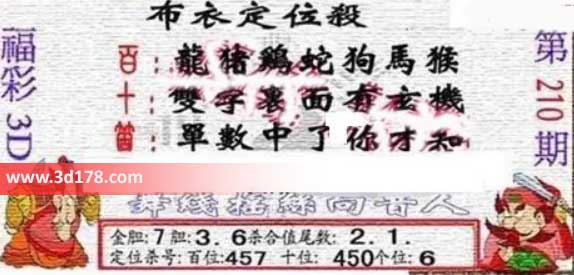 布衣定位殺
福彩3D
第210期
百：龍猪鷄蛇狗馬猴
十：雙字裏面有玄機
單數中了你才知
www.3d178.com
金胆:7胆:3.6杀合值尾数:2.1.
定位杀号:百位:457 十位:450个位:6